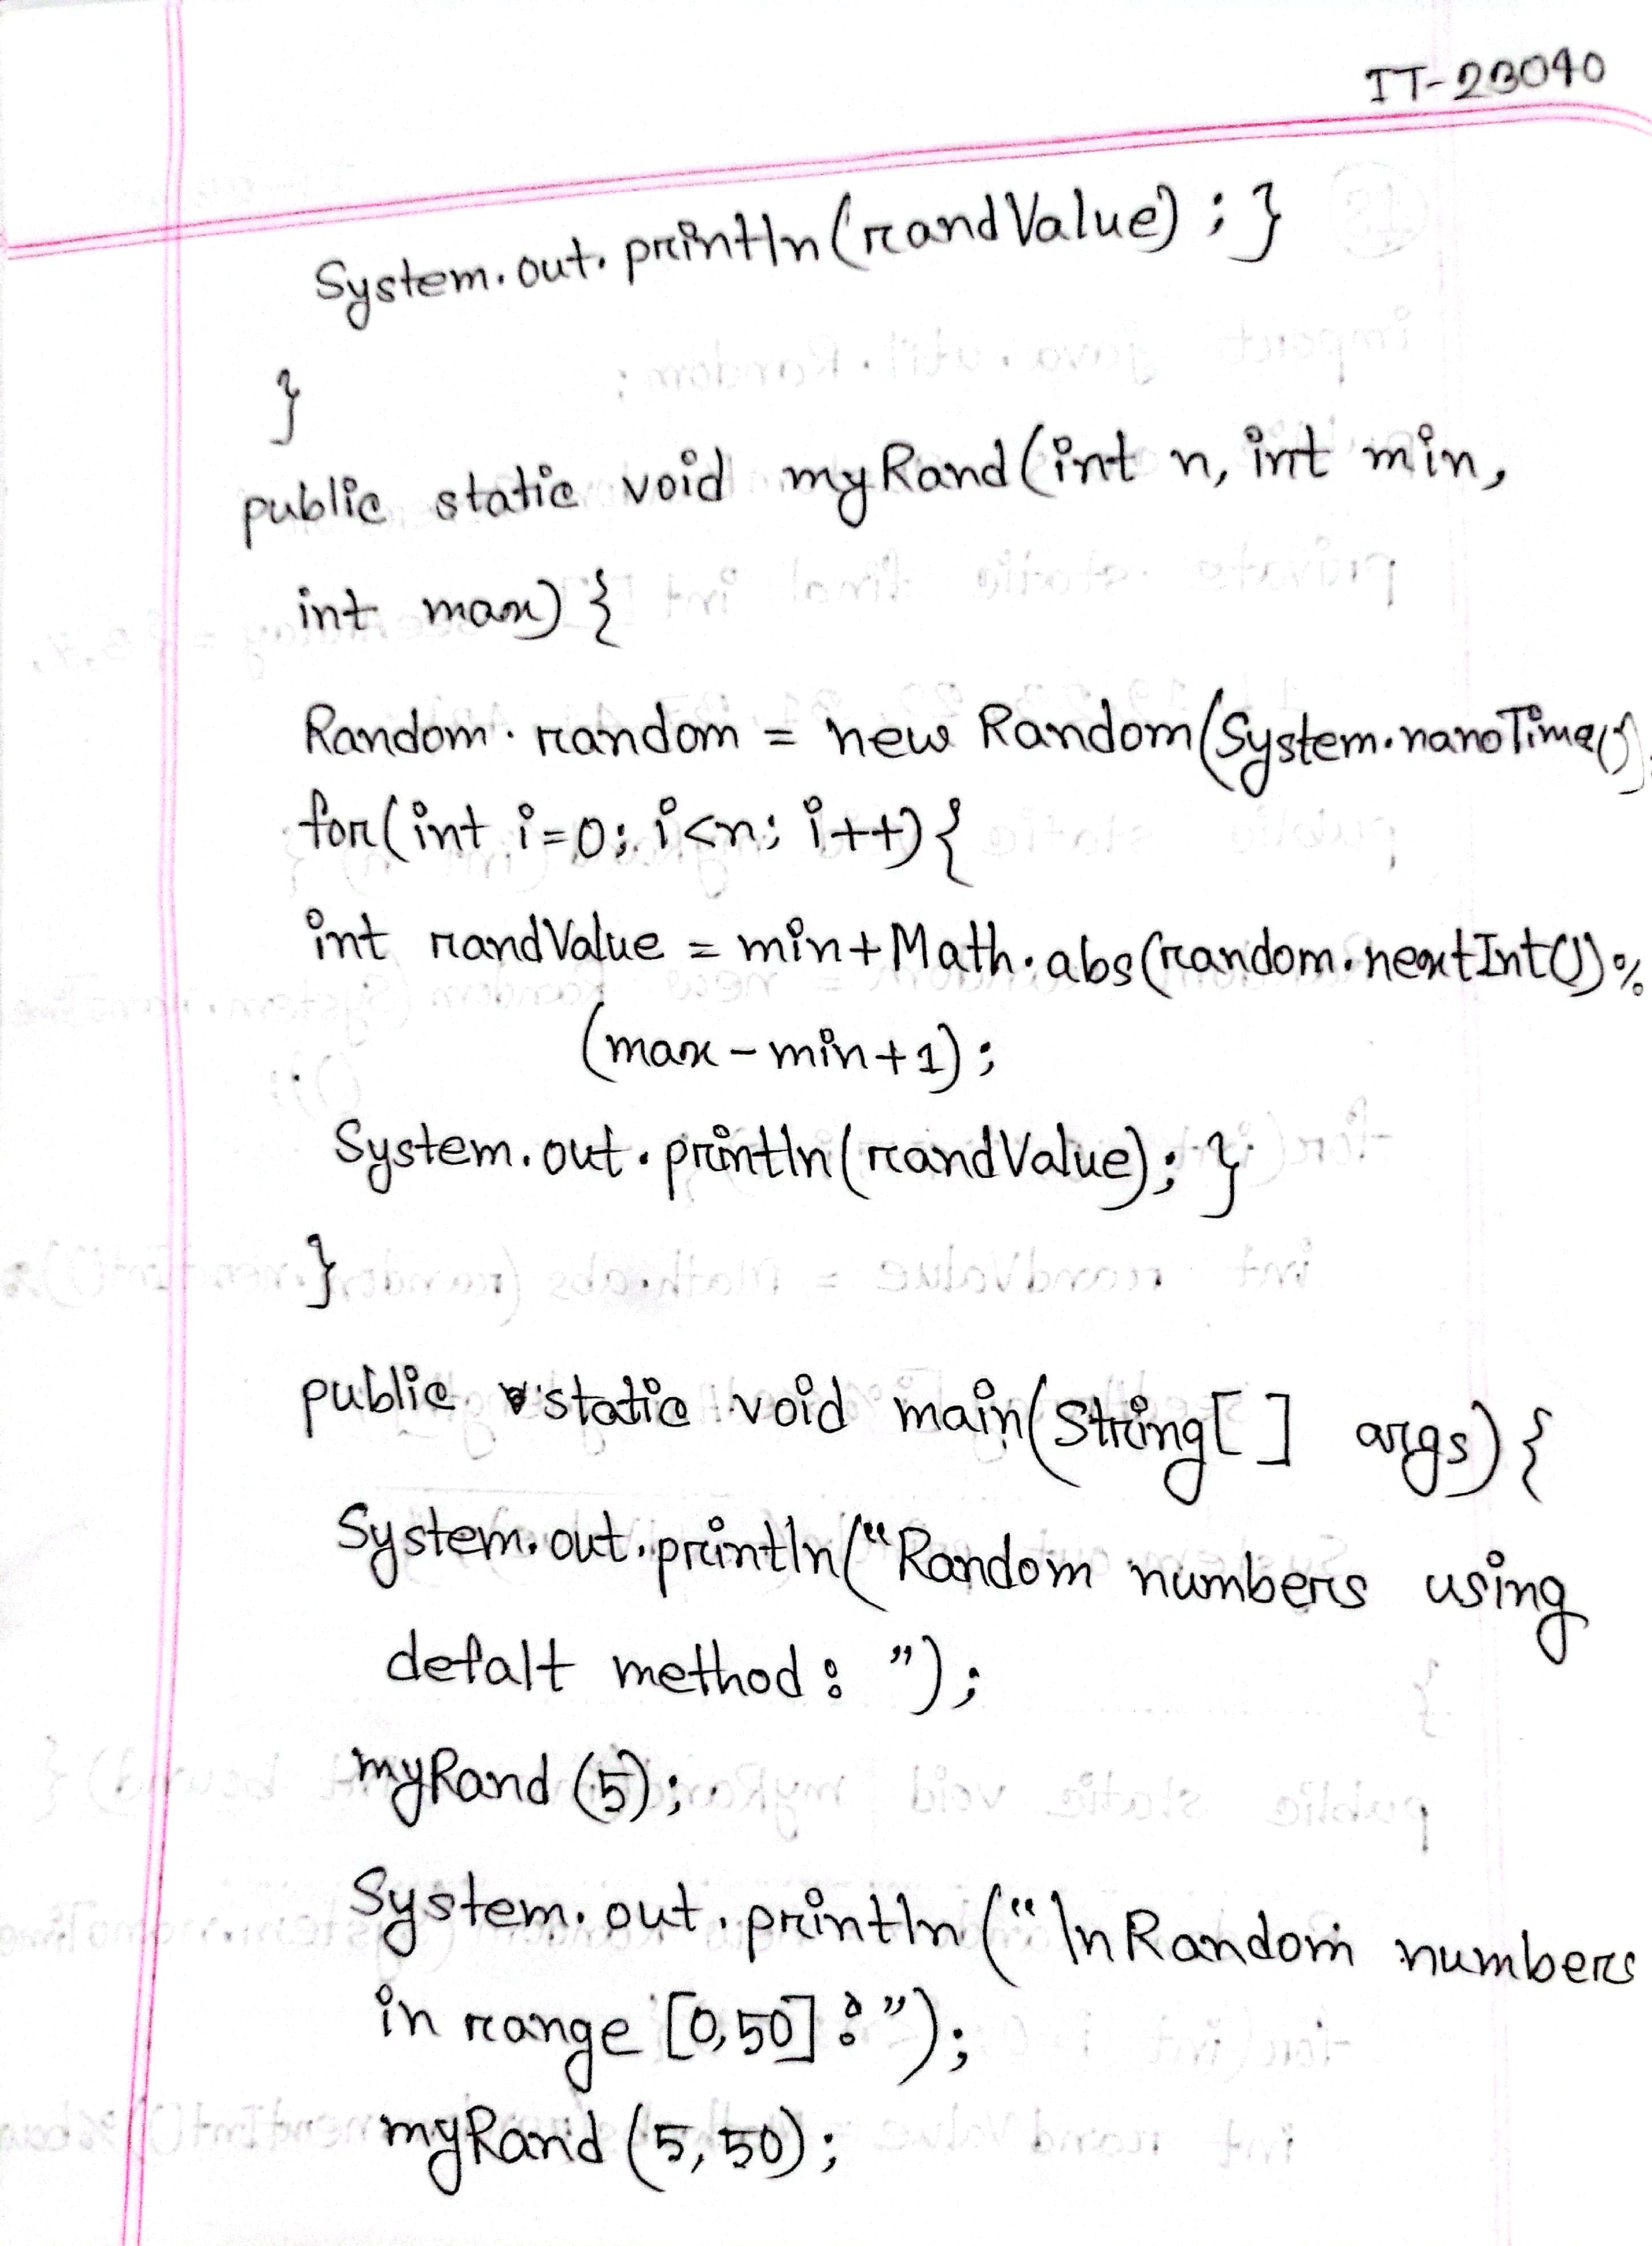 IT-23040
System.out.println(randValue);}
}
public static void myRand(int n, int min,
int max){
Random random = new Random(System.nanoTime()
for(int i=0; i<n; i++){
int randValue = min+Math.abs(random.nextInt())%
(max-min+1);
System.out.println(randValue);}
}
public static void main(String[] args){
System.out.println("Random numbers using
defalt method: ");
myRand(5);
System.out.println("\nRandom numbers
in range [0,50]:");
myRand(5,50);